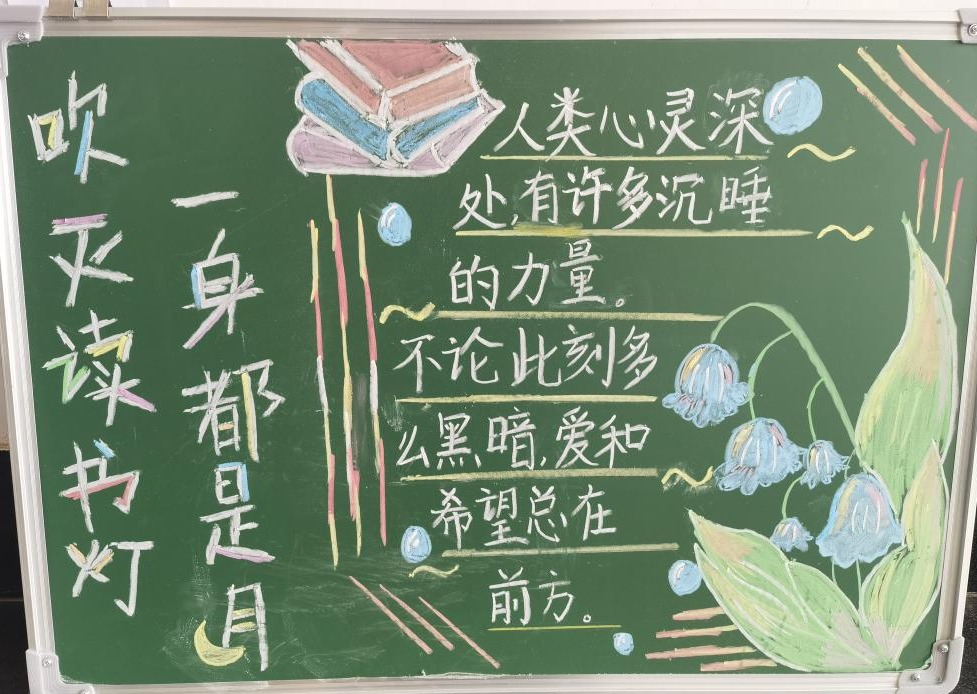 吹灭读书灯
一身都是月
人类心灵深
处,有许多沉睡
的力量。
不论此刻多
么黑暗,爱和
希望总在
前方。